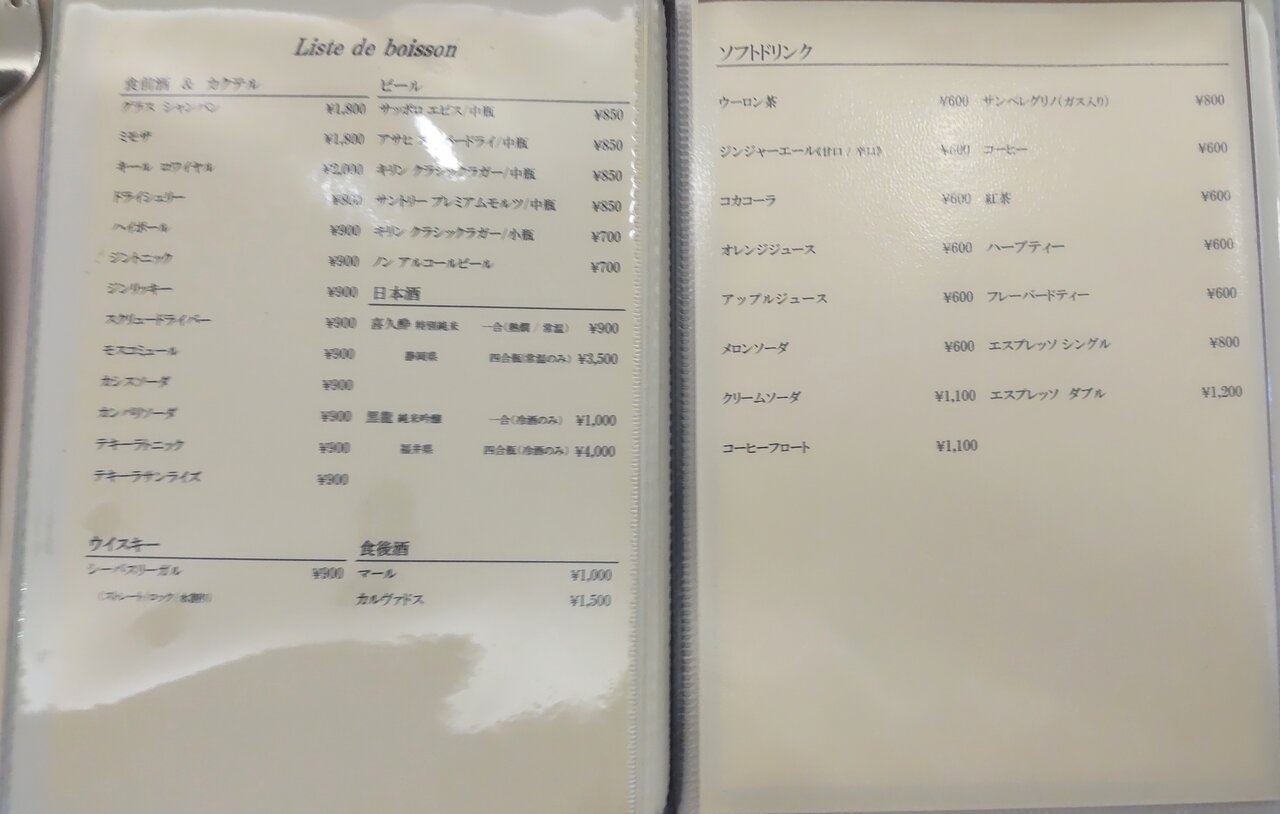 Liste de boisson
食前酒 & カクテル
グラス シャンパン ¥1,800
ミモザ ¥1,800
キール ロワイヤル ¥2,000
ドライシェリー ¥800
ハイボール ¥900
ジントニック ¥900
ジンリッキー ¥900
スクリュードライバー ¥900
モスコミュール ¥900
カシスソーダ ¥900
カンパリソーダ ¥900
テキーラトニック ¥900
テキーラサンライズ ¥900
ウイスキー
シーバスリーガル ¥900
(ストレート/ロック/水割り)
ビール
サッポロ エビス/中瓶 ¥850
アサヒ ードライ/中瓶 ¥850
キリン クラシックラガー/中瓶 ¥850
サントリー プレミアムモルツ/中瓶 ¥850
キリン クラシックラガー/小瓶 ¥700
ノン アルコールビール ¥700
日本酒
喜久酔 特別純米 一合(熱燗 / 常温) ¥900
静岡県 四合瓶(常温のみ) ¥3,500
黒龍 純米吟醸 一合(冷酒のみ) ¥1,000
福井県 四合瓶(冷酒のみ) ¥4,000
食後酒
マール ¥1,000
カルヴァドス ¥1,500
ソフトドリンク
ウーロン茶 ¥600
ジンジャーエール(甘口 / 辛口) ¥600
コカコーラ ¥600
オレンジジュース ¥600
アップルジュース ¥600
メロンソーダ ¥600
クリームソーダ ¥1,100
コーヒーフロート ¥1,100
サンペレグリノ(ガス入り) ¥800
コーヒー ¥600
紅茶 ¥600
ハーブティー ¥600
フレーバードティー ¥600
エスプレッソ シングル ¥800
エスプレッソ ダブル ¥1,200